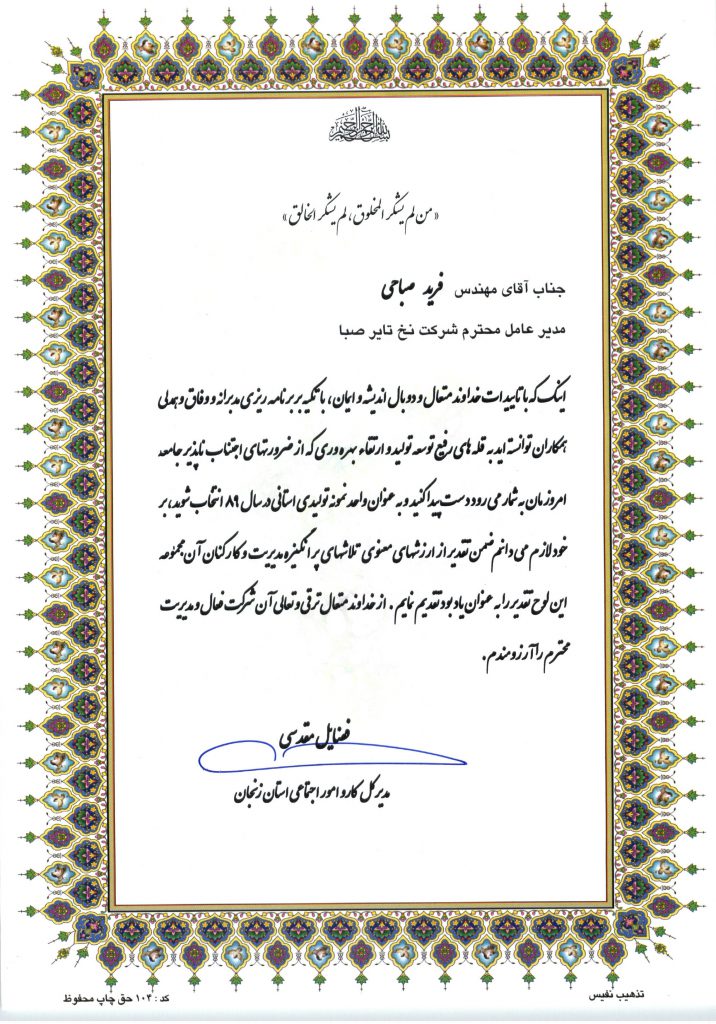 بسم الله الرحمن الرحیم
«من لم یشکر المخلوق، لم یشکر الخالق»
جناب آقای مهندس فرید صباحی
مدیر عامل محترم شرکت نخ تایر صبا
اینک که با تاییدات خداوند متعال و دو بال اندیشه و ایمان، با تکیه بر برنامه ریزی مدبرانه و وفاق و همدلی
همکاران توانسته اید به قله های رفیع توسعه تولید و ارتقاء بهره وری که از ضرورتهای اجتناب ناپذیر جامعه
امروزمان به شمار می رود دست پیدا کنید و به عنوان واحد نمونه تولیدی استانی در سال ۸۹ انتخاب شوید، بر
خود لازم می دانم ضمن تقدیر از ارزشهای معنوی تلاشهای پر انگیزه مدیریت و کارکنان آن مجموعه
این لوح تقدیر را به عنوان یادبود تقدیم نمایم. از خداوند متعال ترقی و تعالی آن شرکت فعال و مدیریت
محترم را آرزومندم.
فضایل مقدسی
مدیر کل کار و امور اجتماعی استان زنجان
تذهیب نفیس
کد: ۱۰۴ حق چاپ محفوظ